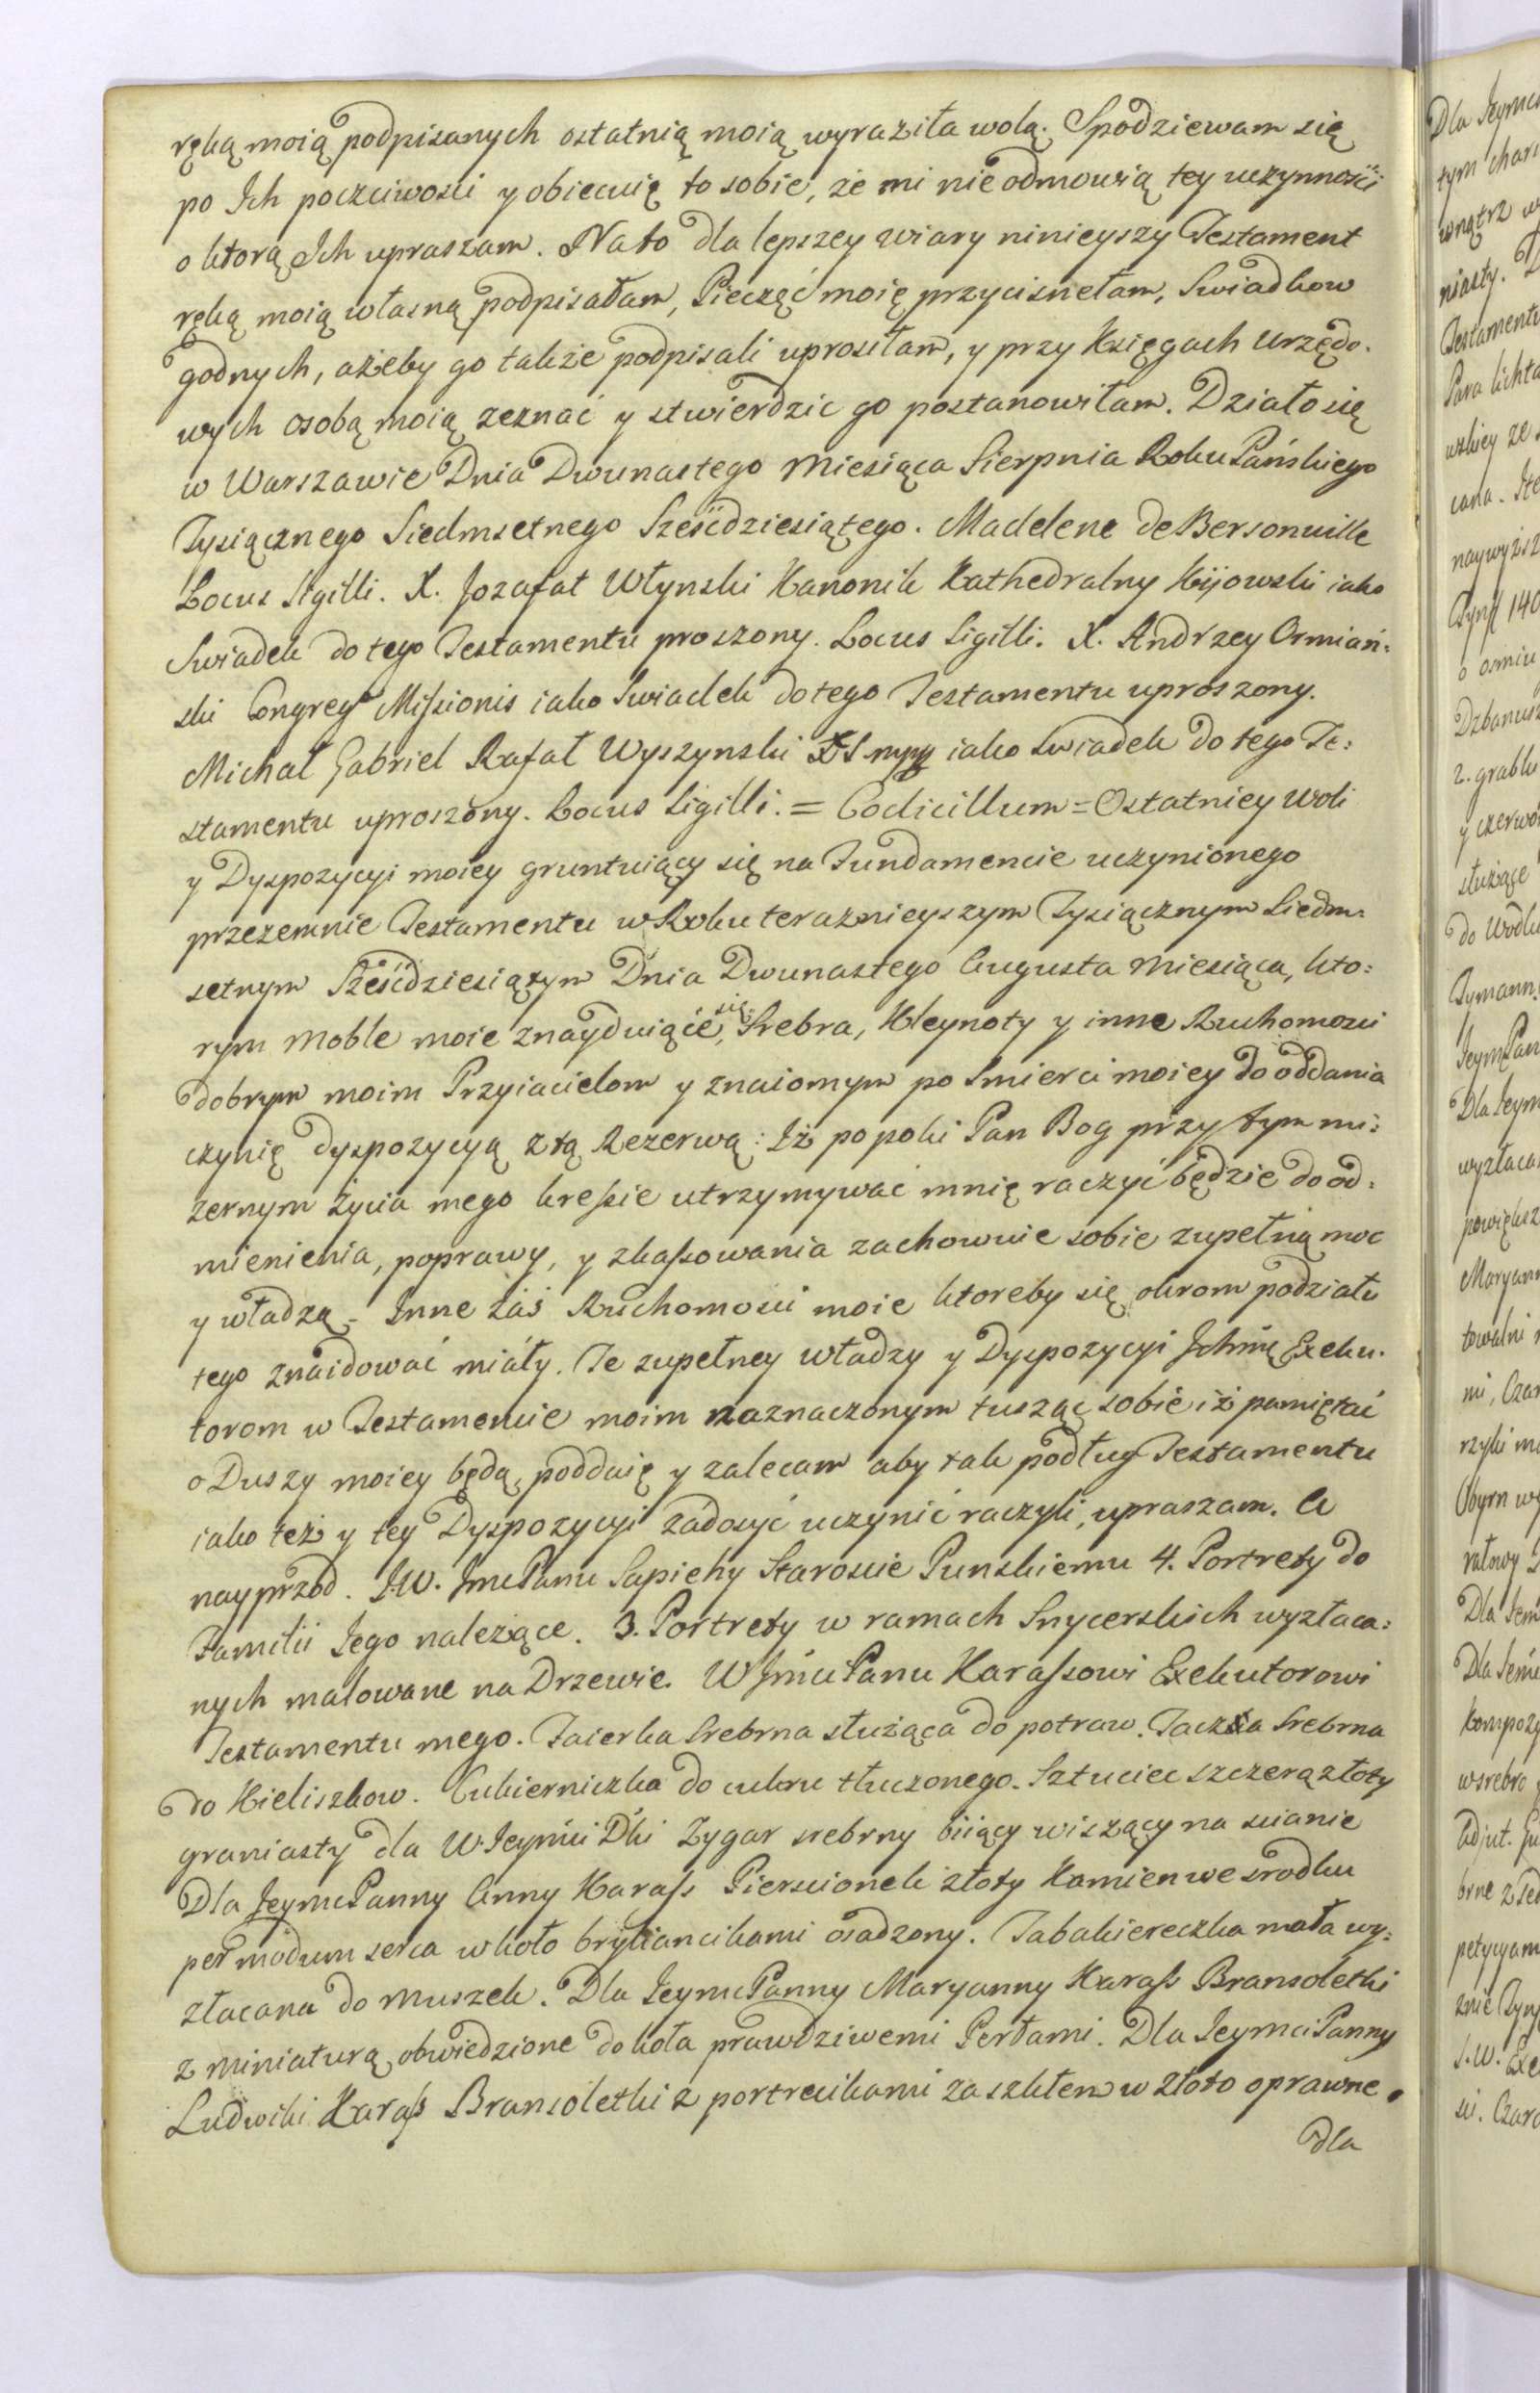 ręką moią podpisanych ostatnią moią wyraziła wolą. Spodziewam się
po Ich poczciwosci y obiecuię to sobie, że mi nie odmowią tey uczynności
o ktorą Ich upraszam. Na to dla lepszey wiary ninieyszy Testament
ręką moią własną podpisałam, Pieczęć moię przycisnełam, Swiadkow
godnych, ażeby go także podpisali uprosiłam, y przy Księgach Urzędo-
wych osobą moią zeznać y stwierdzic go postanowiłam. Działo się
w Warszawie Dnia Dwunastego Miesiąca Sierpnia Roku Pańskiego
Tysiącznego Siedmsetnego Sześćdziesiątego. Madelene de Bersonville
Locus Sigilli. X. Jozafat Włynski Kanonik Kathedralny Kijowski iako
Swiadek do tego Testamentu proszony. Locus Sigilli. X. Andrzey Ormiań:
ski Congreg Missionis iako Swiadek do tego Testamentu uproszony.
Michał Gabriel Rafał Wyszynski iako Swiadek do tego Te:
stamentu uproszony. Locus Sigilli. = Codicillum = Ostatniey Woli
y Dyspozycyi moiey gruntuiący się na Fundamencie uczynionego
przezemnie Testamentu w Roku terazńieyszym Tysiącznym Siedm:
setnym Sześćdziesiątym Dnia Dwunastego Augusta Miesiąca, kto:
rym Moble moie znayduiące się, Srebra, Kleynoty y inne Ruchomosci
dobrym moim Przyiacielom y znaiomym po Smierci moiey do oddania
czynię dyspozycyą z tą Rezerwą: Iż popoki Pan Bog przy tym mi:
zernym życia mego kresie utrzymywać mnię raczyć będzie do od:
mienienia, poprawy, y skassowania zachownie sobie zupełną moc
y władzą - Inne żaś Ruchomosci moie ktoreby się okrom podziału
tego znaidować miały. Te zupełney władzy y Dyspozycyi Ichmę Exeku-
torom w Testamencie moim naznaczonym tusząc sobie iż pamiętać
o Duszy moiey będą, poddaię y zalecam aby tak podług Testamentu
iako też y tey Dyspozycyi zadosyć uczynić raczyli, upraszam. A
nayprzod. J.W. JmcPanu Sapiehy Staroscie Punskiemu 4. Portrety do
Familii Jego należące. 3. Portrety w ramach Snycerskich wyzłaca:
nych malowane na Drzewie. W JmciPanu Karassowi Exekutorowi
Testamentu mego. Faierka Srebrna służąca do potraw. Taczka Srebrna
do Kieliszkow. Cukierniczka do cukru tłuczonego. Sztuciec szczerązłoty
graniasty dla W. Jeymci Dki Zygar srebrny biiący wiszący na scianie
Dla JeymcPanny Anny Karass Pierscionek złoty Kamien we srodku
per modum serca wkoło brylancikami osadzony. Tabakiereczka mała wy:
złacana do Muszek. Dla JeymcPanny Maryanny Karass Bransoletki
z Miniaturą obwiedzione do koła prawdziwemi Perłami. Dla JeymciPanny
Ludwiki Karass Bransoletki z portrecikami za szkłem w złoto oprawne.
dla